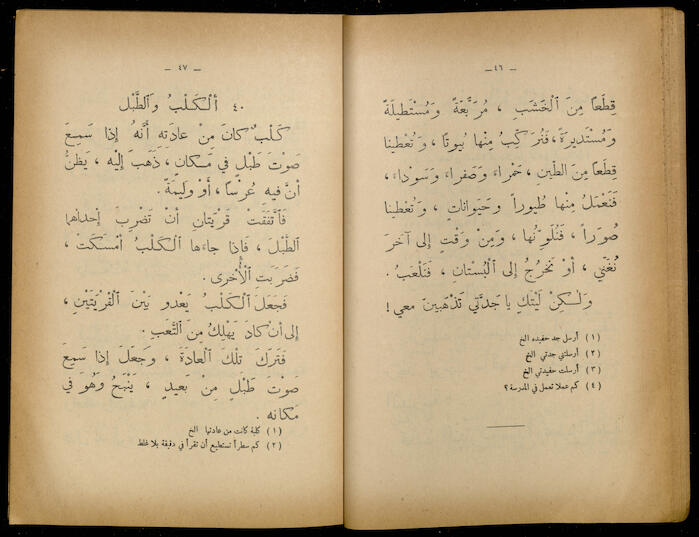 — ٤٦ —
قِطَعاً مِنَ ٱلْخَشَبِ ، مُرَبَّعَةً وَمُسْتَطِيلَةً
وَمُسْتَدِيرَةً ، فَنُرَكِّبُ مِنْهَا بُيُوتًا ، وَتُعْطِينا
قِطَعاً مِنَ الطِّينِ ، حَمْراءَ وَصَفْراءَ وَسَوْداءَ ،
فَنَعْمَلُ مِنْها طُيُوراً وَحَيَواناتٍ ، وَتُعْطِينا
صُوَراً ، فَنُلَوِّنُها ، وَمِنْ وَقْتٍ إلى آخَرَ
نُغَنِّي ، أَوْ نَخْرُجُ إلى ٱلْبُسْتانِ ، فَنَلْعَبُ .
وَلٰكِنْ لَيْتَكِ يا جَدَّتي تَذْهَبِينَ مَعِي !
(١) أرسل جد حفيده الخ
(٢) أرسلتني جدتي الخ
(٣) أرسلت حفيدتي الخ
(٤) كم عملا تعمل في المدرسة ؟
— ٤٧ —
٤٠ ألْكَلْبُ وَٱلطَّبْلُ
كَلْبٌ كانَ مِنْ عادَتِهِ أَنَّهُ إذا سَمِعَ
صَوْتَ طَبْلٍ في مَكانٍ ، ذَهَبَ إلَيْهِ ، يَظُنُّ
أنَّ فيهِ عُرْساً ، أَوْ وَلِيمَةً .
فَٱتَّفَقَتْ قَرْيَتانِ أَنْ تَضْرِبَ إحْداهُما
ٱلطَّبْلَ ، فَإذا جاءَها ٱلْكَلْبُ أَمْسَكَتْ ،
فَضَرَبَتِ ٱلْأُخْرى .
فَجَعَلَ ٱلْكَلْبُ يَعْدُو بَيْنَ ٱلْقَرْيَتَيْنِ ،
إلى أنْ كادَ يَهْلِكُ مِنَ ٱلتَّعَبِ .
فَتَرَكَ تِلْكَ ٱلْعادَةَ ، وَجَعَلَ إذا سَمِعَ
صَوْتَ طَبْلٍ مِنْ بَعِيدٍ ، يَنْبَحُ وَهُوَ في
مَكانِهِ .
(١) كلبة كانت من عادتها الخ
(٢) كم سطراً تستطيع أن تقرأ في دقيقة بلا غلط